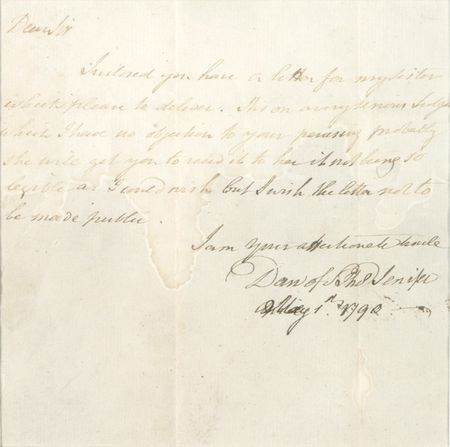 Dear Sir
Inclosed you have a letter for my sister
which please to deliver. It is on a very serious Subject
which I have no objection to your perusing probably
she will get you to read it to her it not being so
legible as I could wish but I wish the letter not to
be made public.
I am your affectionate Uncle
Dan of St Thos Jenifer
May 1st. 1790